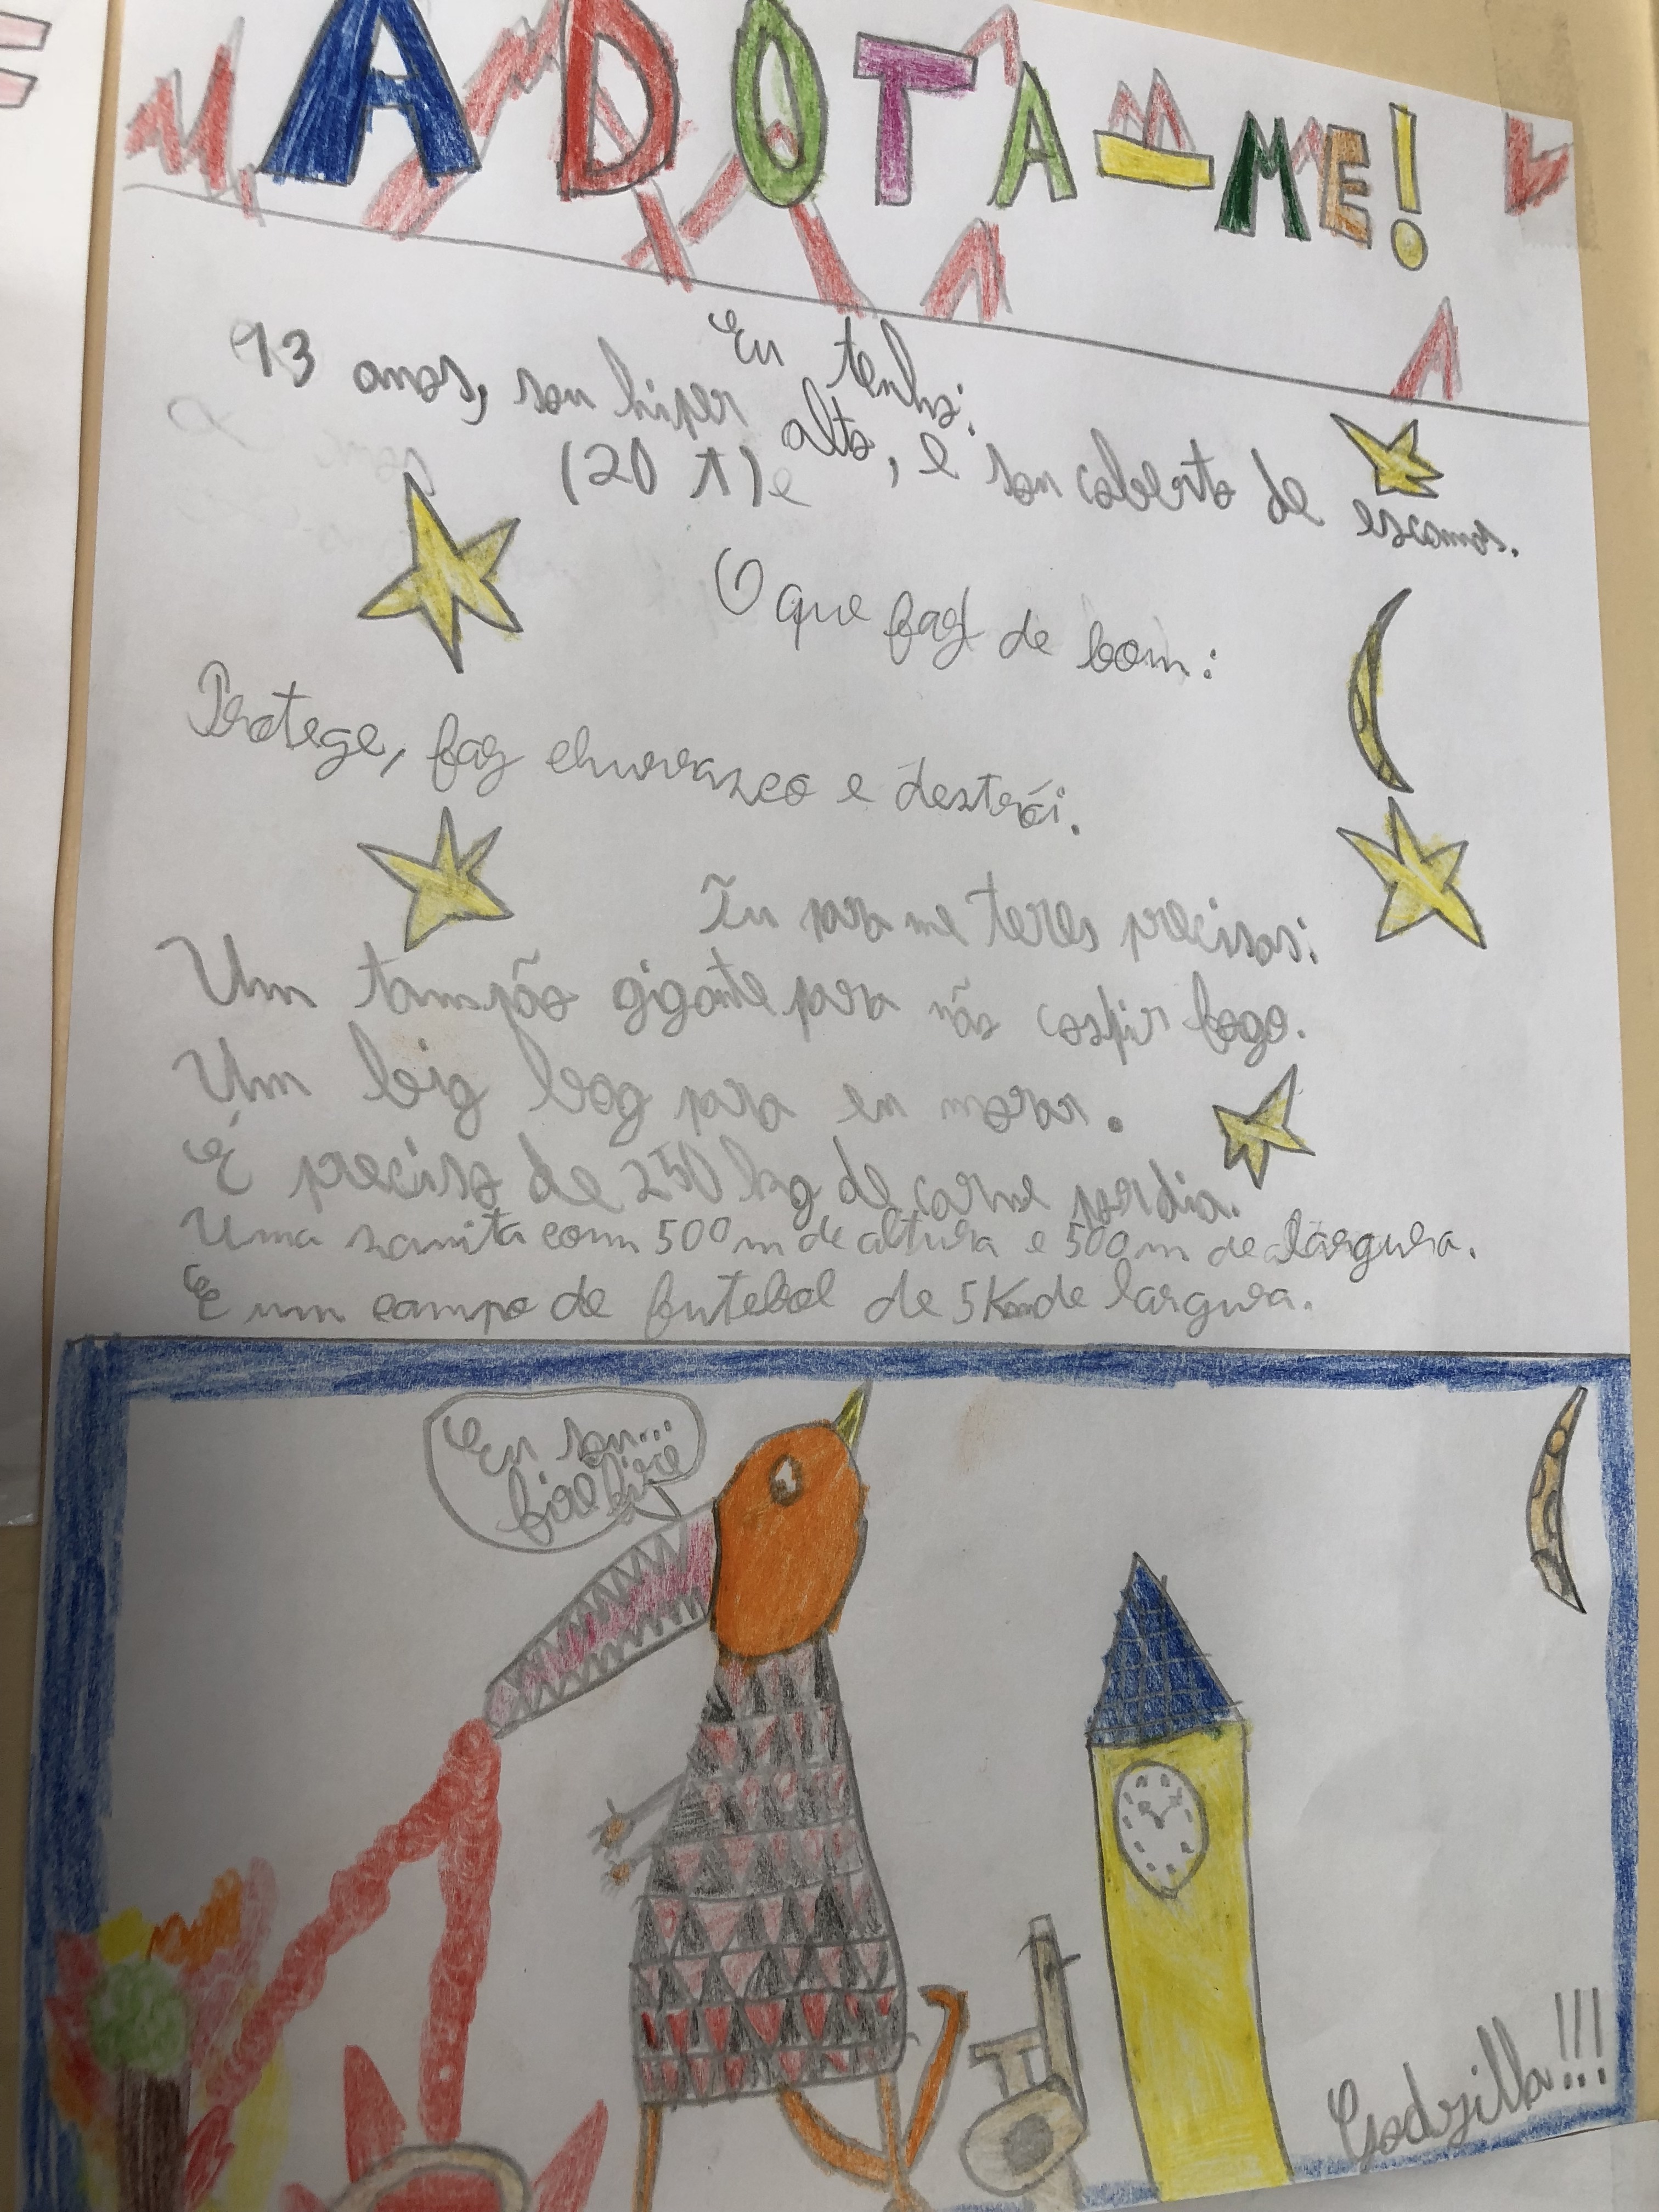 ADOTA-ME!
Eu tenho:
13 anos, sou hiper alto, e sou coberto de escamas.
(20 T) e
O que faz de bom:
Protege, faz churrasco e destrói.
Tu para me teres precisas:
Um tampão gigante para não cospir fogo.
Um big bog para eu morar.
É preciso de 250 kg de carne por dia.
Uma sanita com 500 m de altura e 500 m de largura.
E um campo de futebol de 5K de largura.
Eu sou...
fire fire
Godzilla!!!